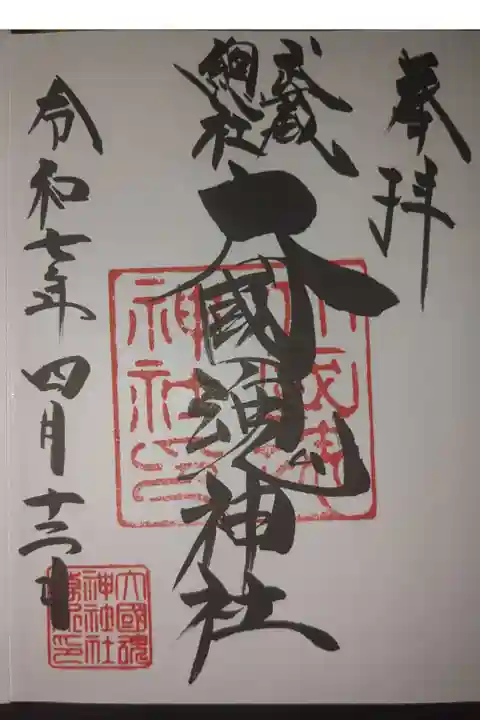 奉拝
武蔵
總社
大國魂神社
令和七年四月十三日
大國魂
神社
神社印
大國魂
神社社
務所印